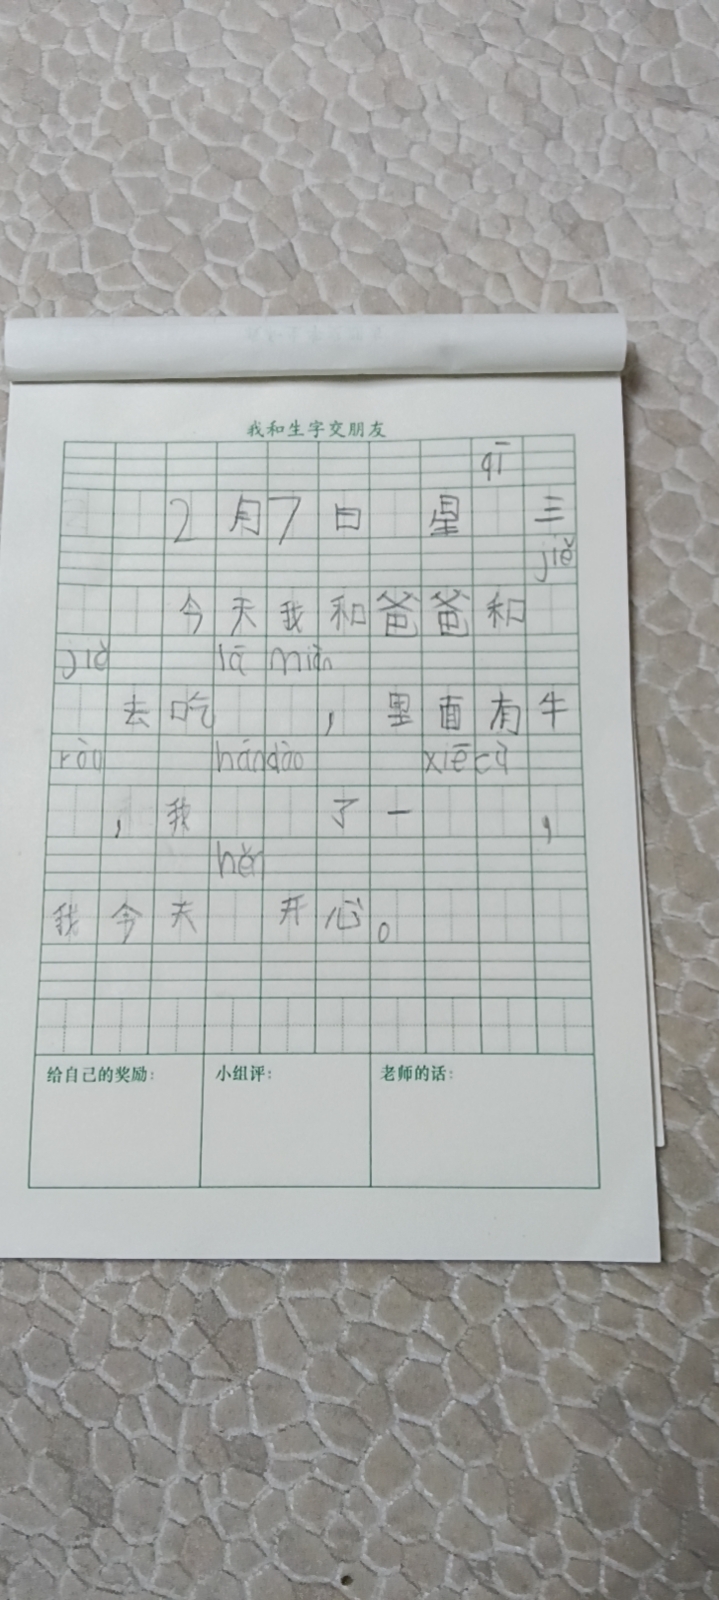 我和生字交朋友
qī
2月7日 星 三
jiě
今天我和爸爸和
jiě lā miàn
去吃 ，里面有牛
ròu hándào xiēcù
，我 了一 ，
hěn
我今天 开心。
给自己的奖励： 小组评： 老师的话：